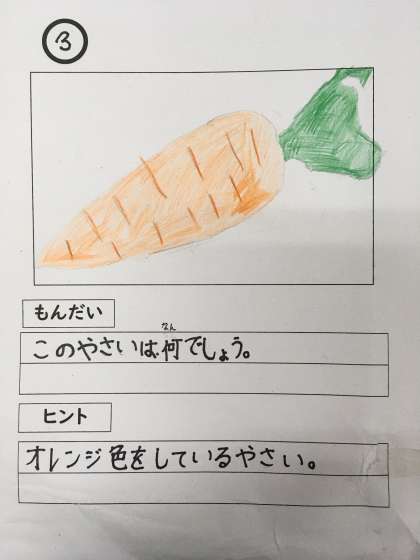 3
もんだい
このやさいは何でしょう。
なん
ヒント
オレンジ色をしているやさい。